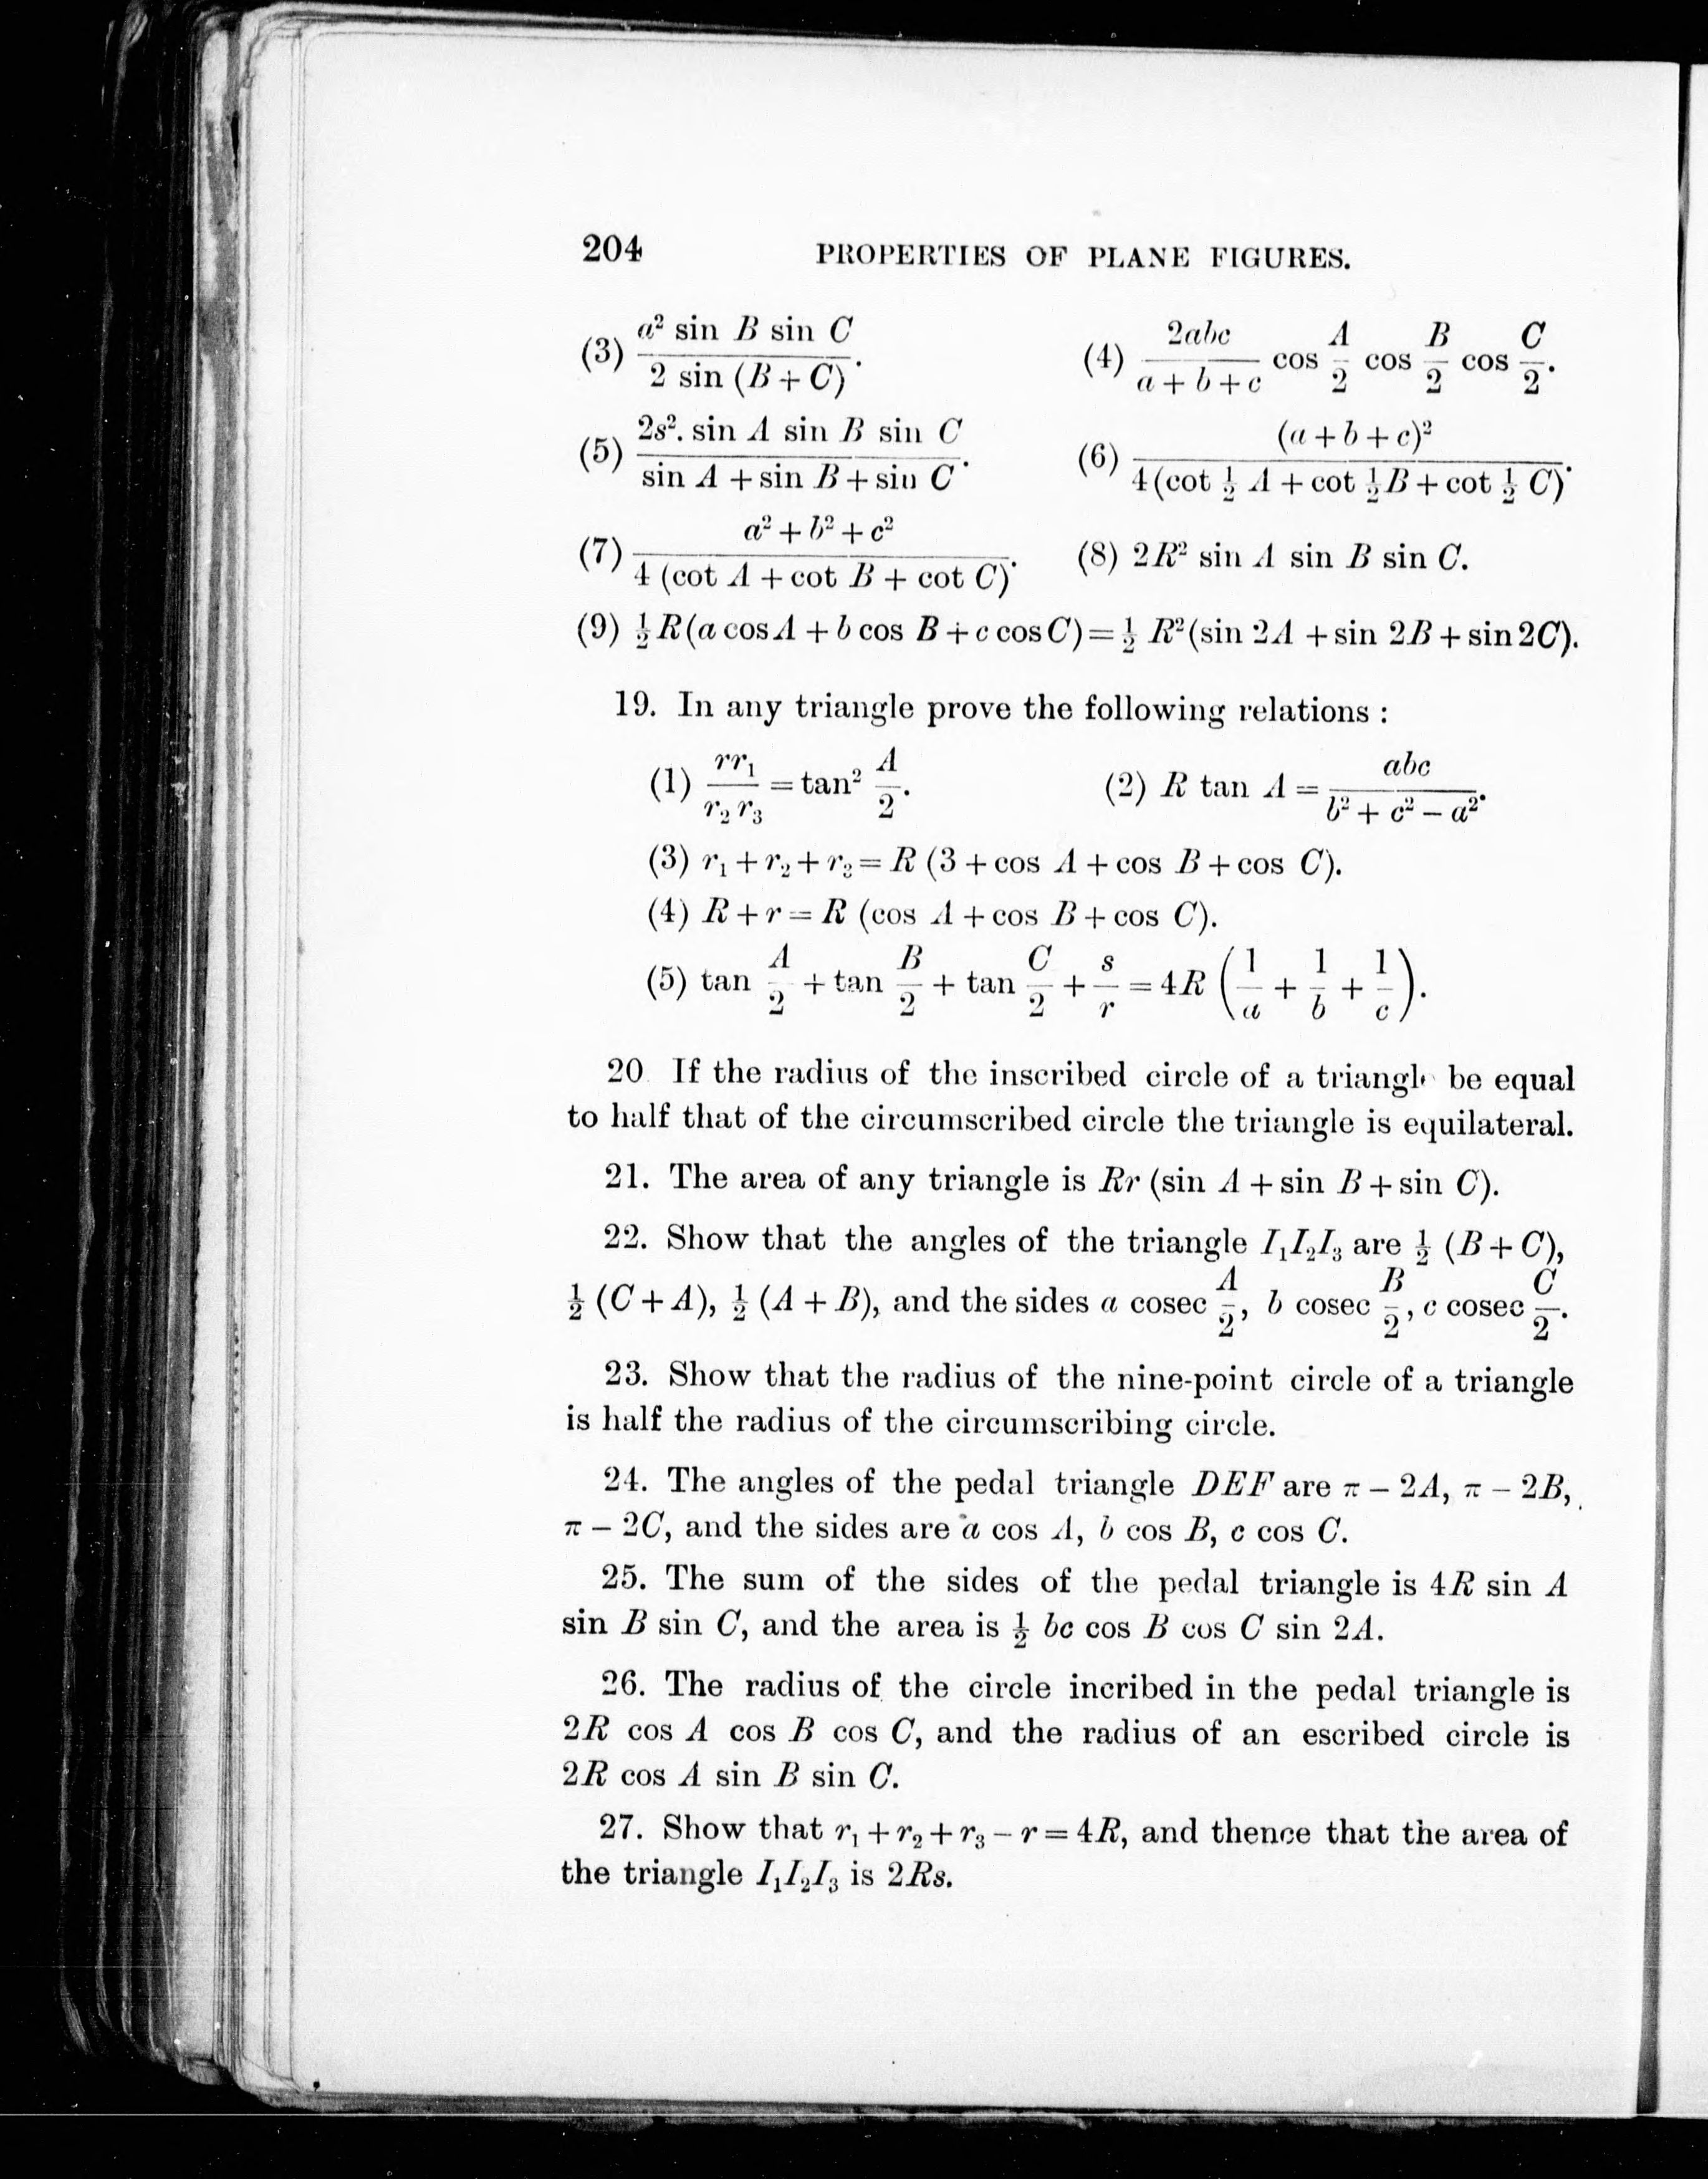 204 PROPERTIES OF PLANE FIGURES.
(3) a² sin B sin C / 2 sin (B + C). (4) 2abc / a + b + c cos A/2 cos B/2 cos C/2.
(5) 2s². sin A sin B sin C / sin A + sin B + sin C. (6) (a + b + c)² / 4 (cot ½ A + cot ½ B + cot ½ C).
(7) a² + b² + c² / 4 (cot A + cot B + cot C). (8) 2R² sin A sin B sin C.
(9) ½ R (a cos A + b cos B + c cos C) = ½ R² (sin 2A + sin 2B + sin 2C).
19. In any triangle prove the following relations :
(1) rr₁ / r₂ r₃ = tan² A/2. (2) R tan A = abc / b² + c² − a².
(3) r₁ + r₂ + r₃ = R (3 + cos A + cos B + cos C).
(4) R + r = R (cos A + cos B + cos C).
(5) tan A/2 + tan B/2 + tan C/2 + s/r = 4R (1/a + 1/b + 1/c).
20 If the radius of the inscribed circle of a triangle be equal
to half that of the circumscribed circle the triangle is equilateral.
21. The area of any triangle is Rr (sin A + sin B + sin C).
22. Show that the angles of the triangle I₁I₂I₃ are ½ (B + C),
½ (C + A), ½ (A + B), and the sides a cosec A/2, b cosec B/2, c cosec C/2.
23. Show that the radius of the nine-point circle of a triangle
is half the radius of the circumscribing circle.
24. The angles of the pedal triangle DEF are π − 2A, π − 2B,
π − 2C, and the sides are a cos A, b cos B, c cos C.
25. The sum of the sides of the pedal triangle is 4R sin A
sin B sin C, and the area is ½ bc cos B cos C sin 2A.
26. The radius of the circle incribed in the pedal triangle is
2R cos A cos B cos C, and the radius of an escribed circle is
2R cos A sin B sin C.
27. Show that r₁ + r₂ + r₃ − r = 4R, and thence that the area of
the triangle I₁I₂I₃ is 2Rs.